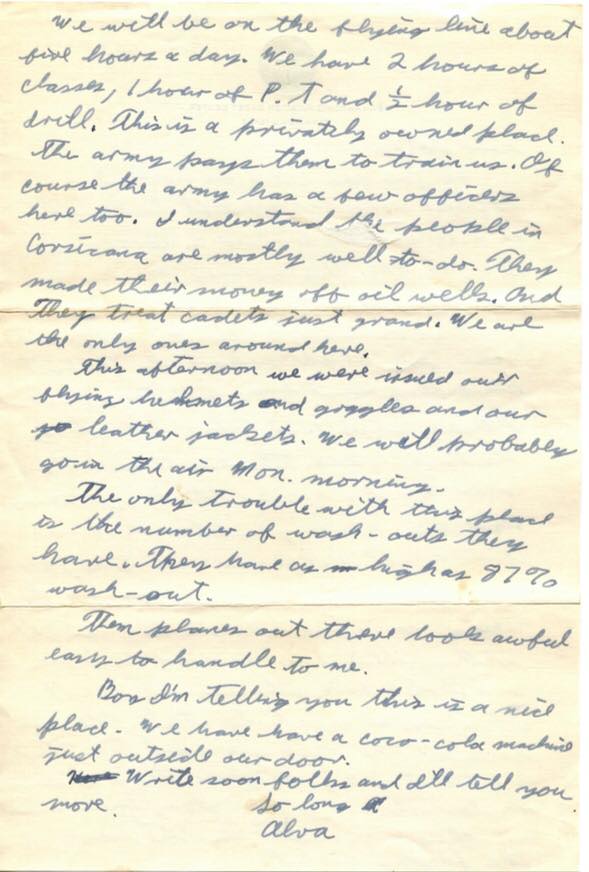 We will be on the flying line about
five hours a day. We have 2 hours of
classes, 1 hour of P. T and ½ hour of
drill. This is a privately owned place.
The army pays them to train us. Of
course the army has a few officers
here too. I understand the people in
Corsicana are mostly well-to-do. They
made their money off oil wells. And
They treat cadets just grand. We are
the only ones around here.
This afternoon we were issued our
flying helmets and goggles and our
leather jackets. We will probably
go in the air Mon. morning.
The only trouble with this place
is the number of wash-outs they
have. They have as high as 87%
wash-out.
Them planes out there look awful
easy to handle to me.
Boy I'm telling you this is a nice
place. We have have a coco-cola machine
just outside our door.
Write soon folks and I'll tell you
more. So long
Alva